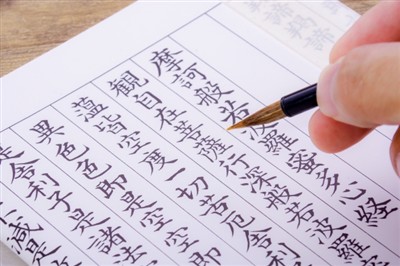 摩訶般若波羅蜜多心経
観自在菩薩行深般若波羅
蘊皆空度一切苦厄舎利
異色色即是空空即
是舎利子是諸法
不減是